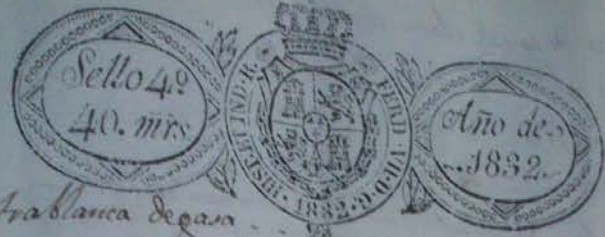 Sello 4º
40. mrs
HISP. ET IND. R. FERD. VII. D. G. 1832.
Año de
1832.
blanca de gasa